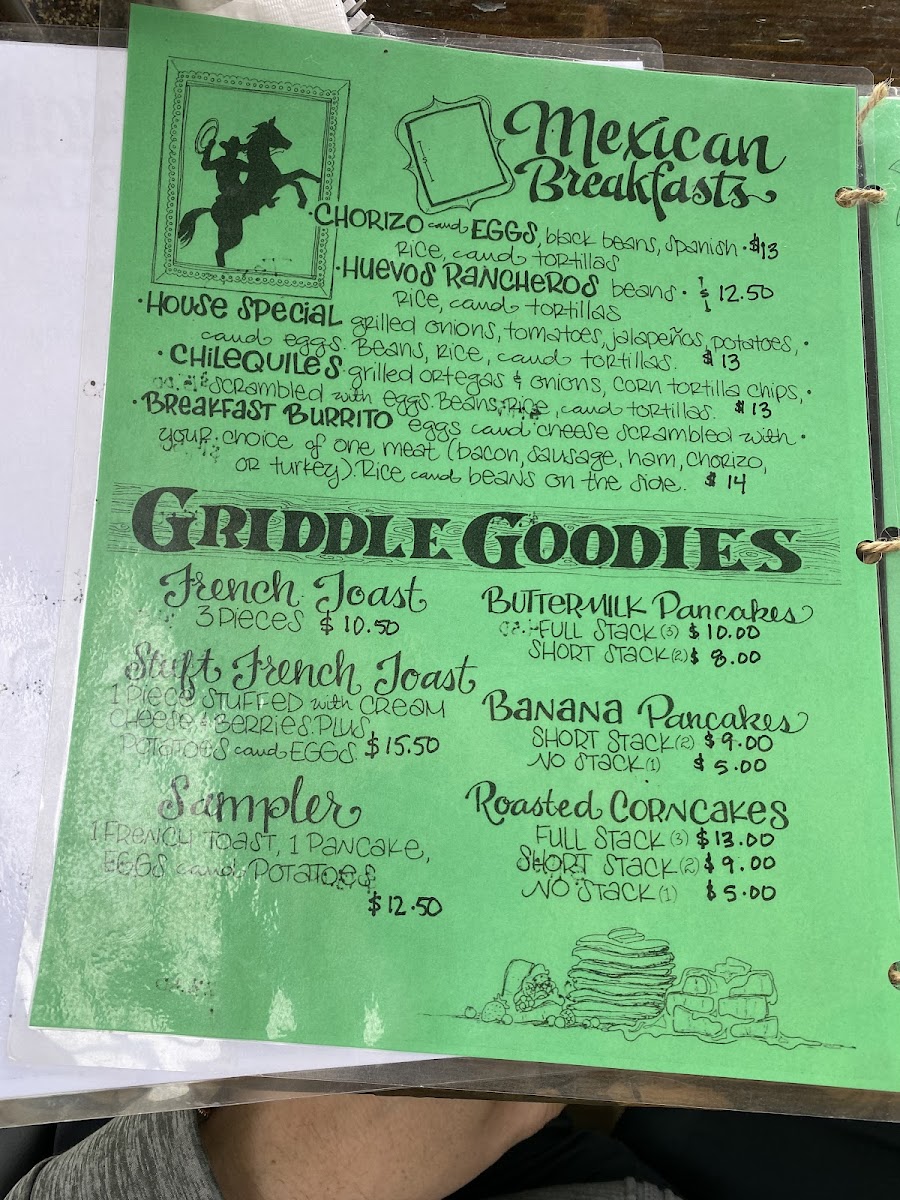 Mexican
Breakfasts
·CHORIZO and EGGS, black beans, spanish · $13
Rice, and tortillas
·HUEVOS RANCHEROS beans · $ 12.50
Rice, and tortillas
·HOUSE SPECIAL grilled onions, tomatoes, jalapeños, potatoes, ·
and eggs. Beans, Rice, and tortillas. $13
·CHILEQUILES grilled ortegas & onions, corn tortilla chips, ·
scrambled with eggs. Beans, Rice, and tortillas. $13
·BREAKFAST BURRITO eggs and cheese scrambled with ·
your choice of one meat (bacon, sausage, ham, chorizo,
or turkey). Rice and beans on the side. $14
GRIDDLE GOODIES
French Toast
3 PIECES $10.50
Stuft French Toast
1 PIECE STUFFED with CREAM
CHEESE & BERRIES. PLUS
POTATOES and EGGS. $15.50
Sampler
1 FRENCH TOAST, 1 PANCAKE,
EGGS and POTATOES
$12.50
BUTTERMILK Pancakes
FULL STACK (3) $10.00
SHORT STACK (2) $8.00
BANANA Pancakes
SHORT STACK (2) $9.00
NO STACK (1) $5.00
Roasted CORNCAKES
FULL STACK (3) $13.00
SHORT STACK (2) $9.00
NO STACK (1) $5.00